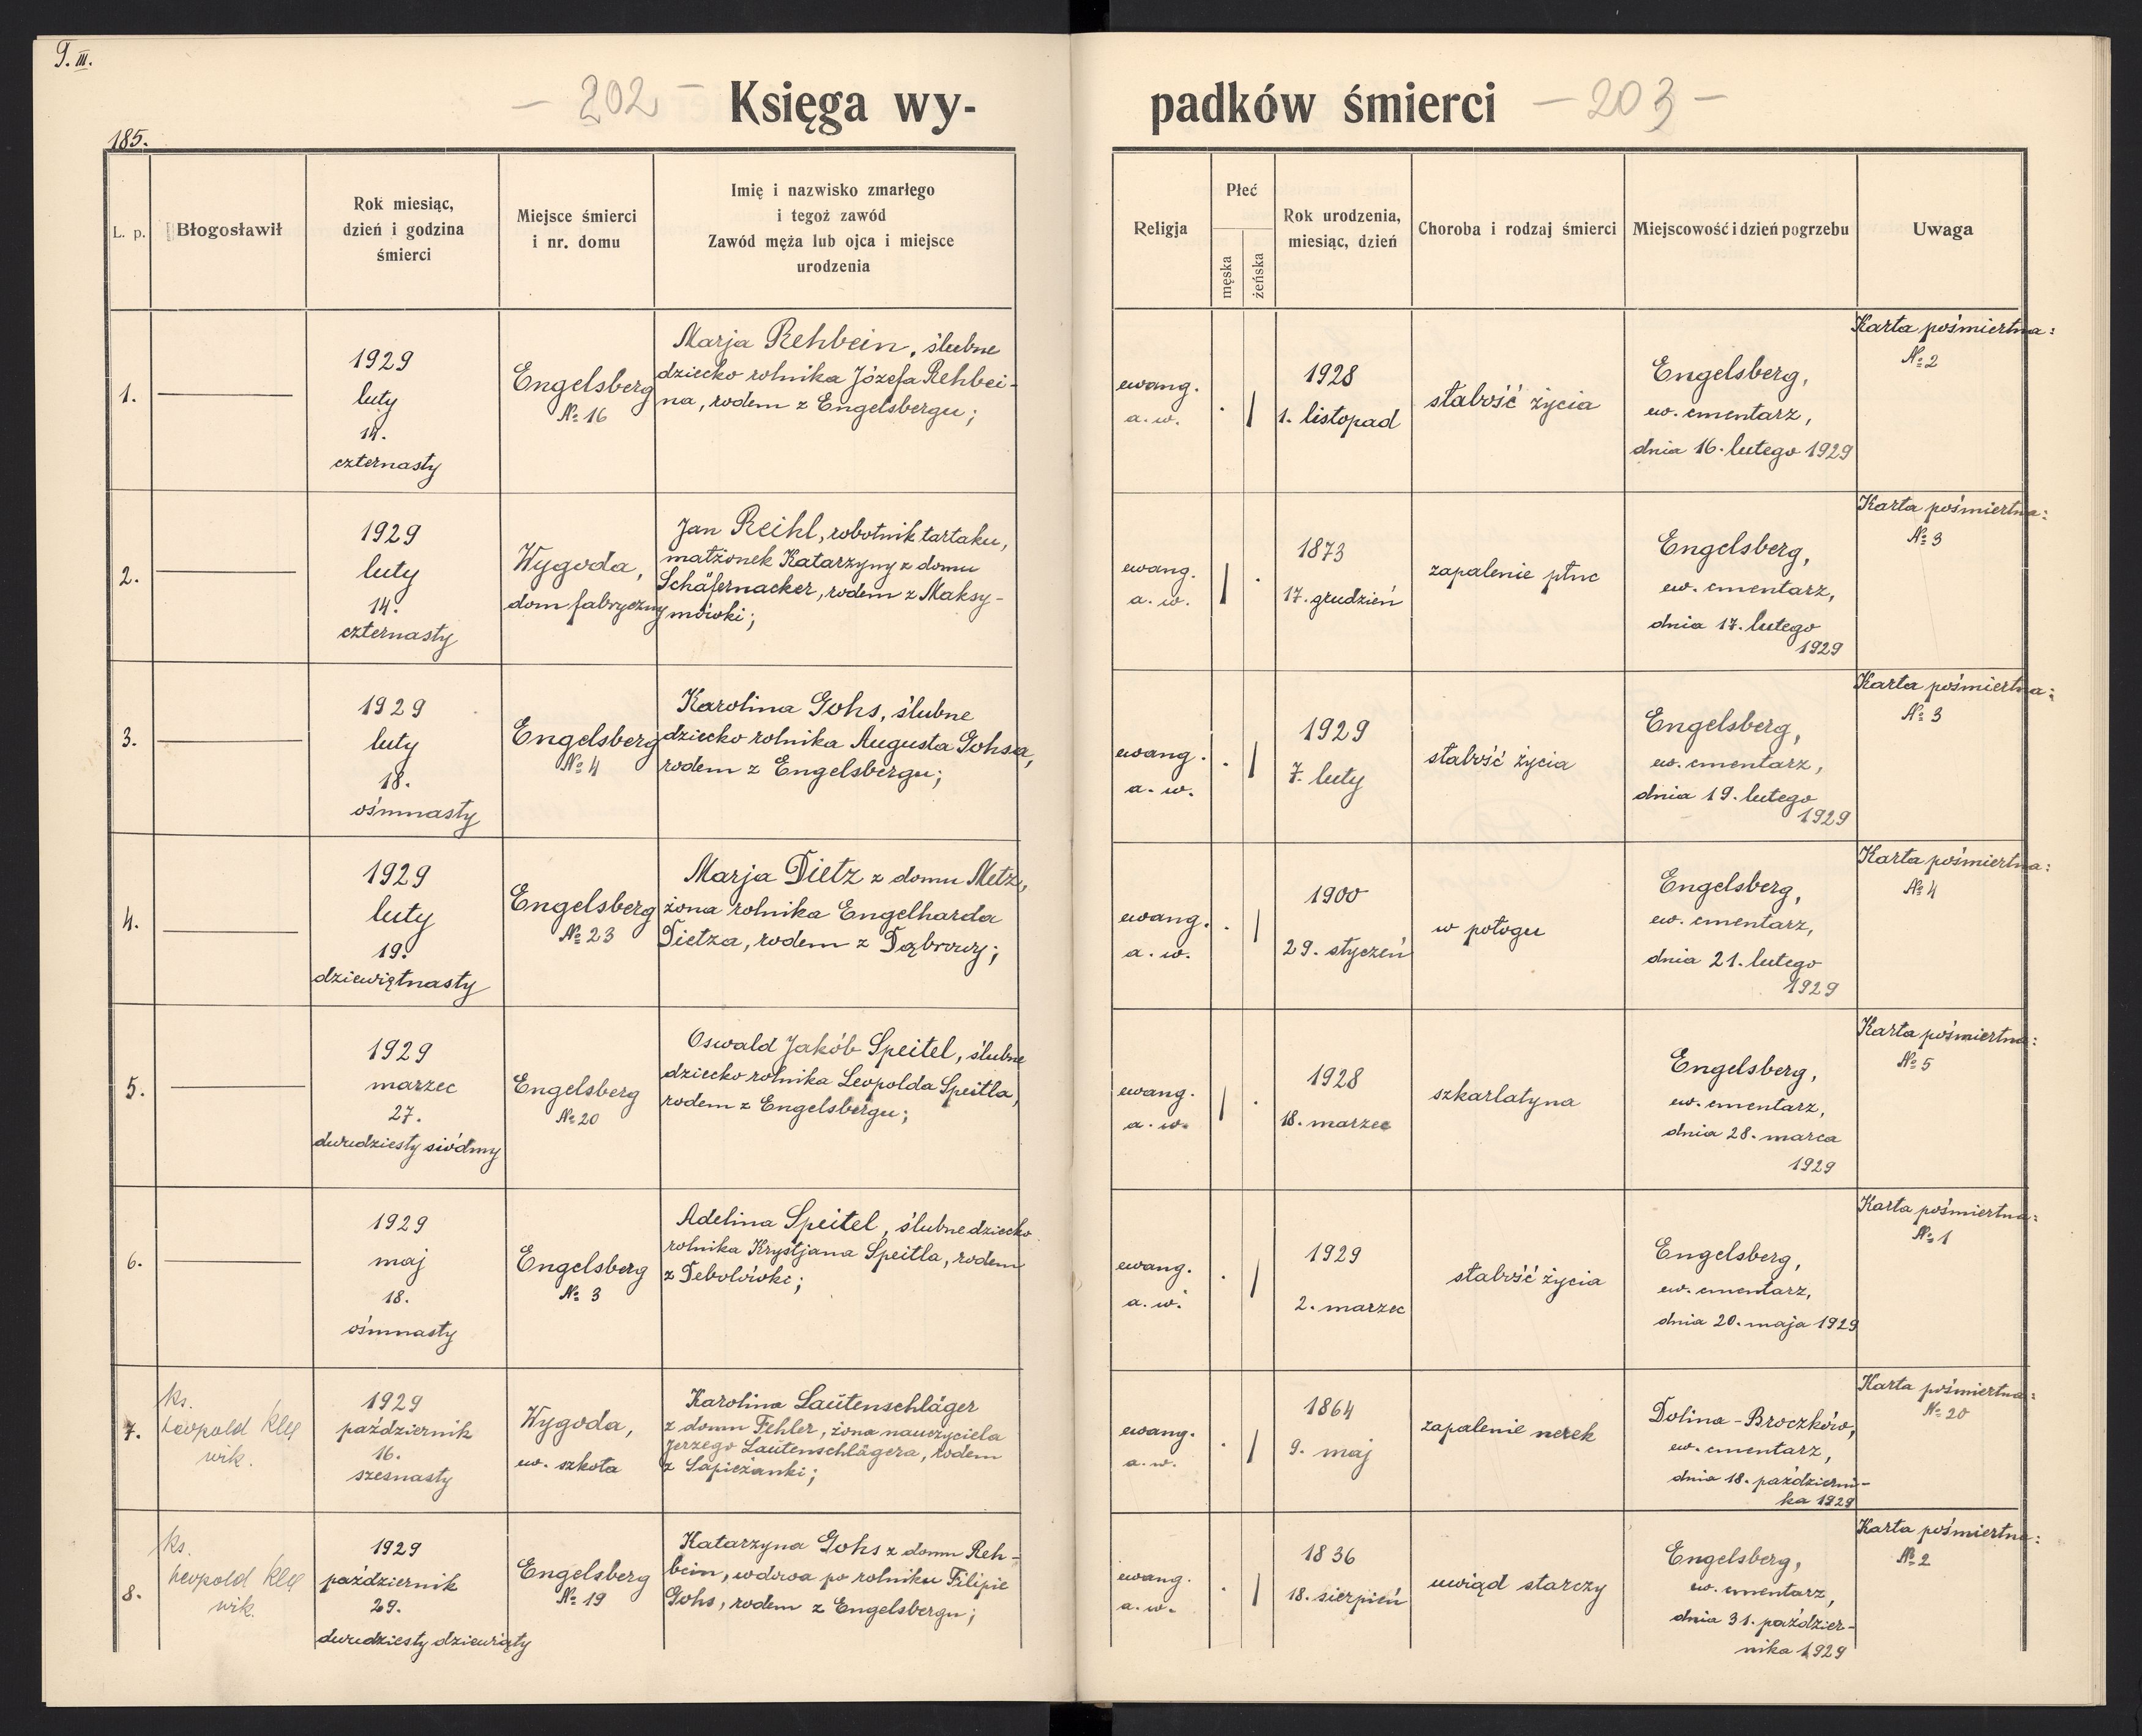 T. III.
– 202 –
Księga wy-
padków śmierci
– 203 –
185.
L. p.
Błogosławił
Rok miesiąc,
dzień i godzina
śmierci
Miejsce śmierci
i nr. domu
Imię i nazwisko zmarłego
i tegoż zawód
Zawód męża lub ojca i miejsce
urodzenia
Religja
Płeć
męska
żeńska
Rok urodzenia,
miesiąc, dzień
Choroba i rodzaj śmierci
Miejscowość i dzień pogrzebu
Uwaga
1.
1929
luty
14.
czternasty
Engelsberg
№ 16
Marja Rehbein, ślubne
dziecko rolnika Józefa Rehbei-
na, rodem z Engelsbergu;
ewang.
a. w.
1928
1. listopad
słabość życia
Engelsberg,
ew. cmentarz,
dnia 16. lutego 1929
Karta pośmiertna:
№ 2
2.
1929
luty
14.
czternasty
Wygoda,
dom fabryczny
Jan Reihl, robotnik tartaku,
małżonek Katarzyny z domu
Schäfernacker, rodem z Maksy-
mówki;
ewang.
a. w.
1873
17. grudzień
zapalenie płuc
Engelsberg,
ew. cmentarz,
dnia 17. lutego
1929
Karta pośmiertna:
№ 3
3.
1929
luty
18.
ośmnasty
Engelsberg
№ 4
Karolina Gohs, ślubne
dziecko rolnika Augusta Gohsa,
rodem z Engelsbergu;
ewang.
a. w.
1929
7. luty
słabość życia
Engelsberg,
ew. cmentarz,
dnia 19. lutego
1929
Karta pośmiertna:
№ 3
4.
1929
luty
19.
dziewiętnasty
Engelsberg
№ 23
Marja Dietz z domu Metz,
żona rolnika Engelharda
Dietza, rodem z Dąbrowy;
ewang.
a. w.
1900
29. styczeń
w połogu
Engelsberg,
ew. cmentarz,
dnia 21. lutego
1929
Karta pośmiertna:
№ 4
5.
1929
marzec
27.
dwudziesty siódmy
Engelsberg
№ 20
Oswald Jakób Speitel, ślubne
dziecko rolnika Leopolda Speitla,
rodem z Engelsbergu;
ewang.
a. w.
1928
18. marzec
szkarlatyna
Engelsberg,
ew. cmentarz,
dnia 28. marca
1929
Karta pośmiertna:
№ 5
6.
1929
maj
18.
ośmnasty
Engelsberg
№ 3
Adelina Speitel, ślubne dziecko
rolnika Krystjana Speitla, rodem
z Debolówki;
ewang.
a. w.
1929
2. marzec
słabość życia
Engelsberg,
ew. cmentarz,
dnia 20. maja 1929
Karta pośmiertna:
№ 1
7.
ks.
Leopold Klee
wik.
1929
październik
16.
szesnasty
Wygoda,
ew. szkoła
Karolina Lautenschläger
z domu Fehler, żona nauczyciela
Jerzego Lautenschlägera, rodem
z Sapieżanki;
ewang.
a. w.
1864
9. maj
zapalenie nerek
Dolina-Broczków,
ew. cmentarz,
dnia 18. październi-
ka 1929
Karta pośmiertna:
№ 20
8.
ks.
Leopold Klee
wik.
1929
październik
29.
dwudziesty dziewiąty
Engelsberg
№ 19
Katarzyna Gohs z domu Reh-
bein, wdowa po rolniku Filipie
Gohs, rodem z Engelsbergu;
ewang.
a. w.
1836
18. sierpień
uwiąd starczy
Engelsberg,
ew. cmentarz,
dnia 31. paździer-
nika 1929
Karta pośmiertna:
№ 2